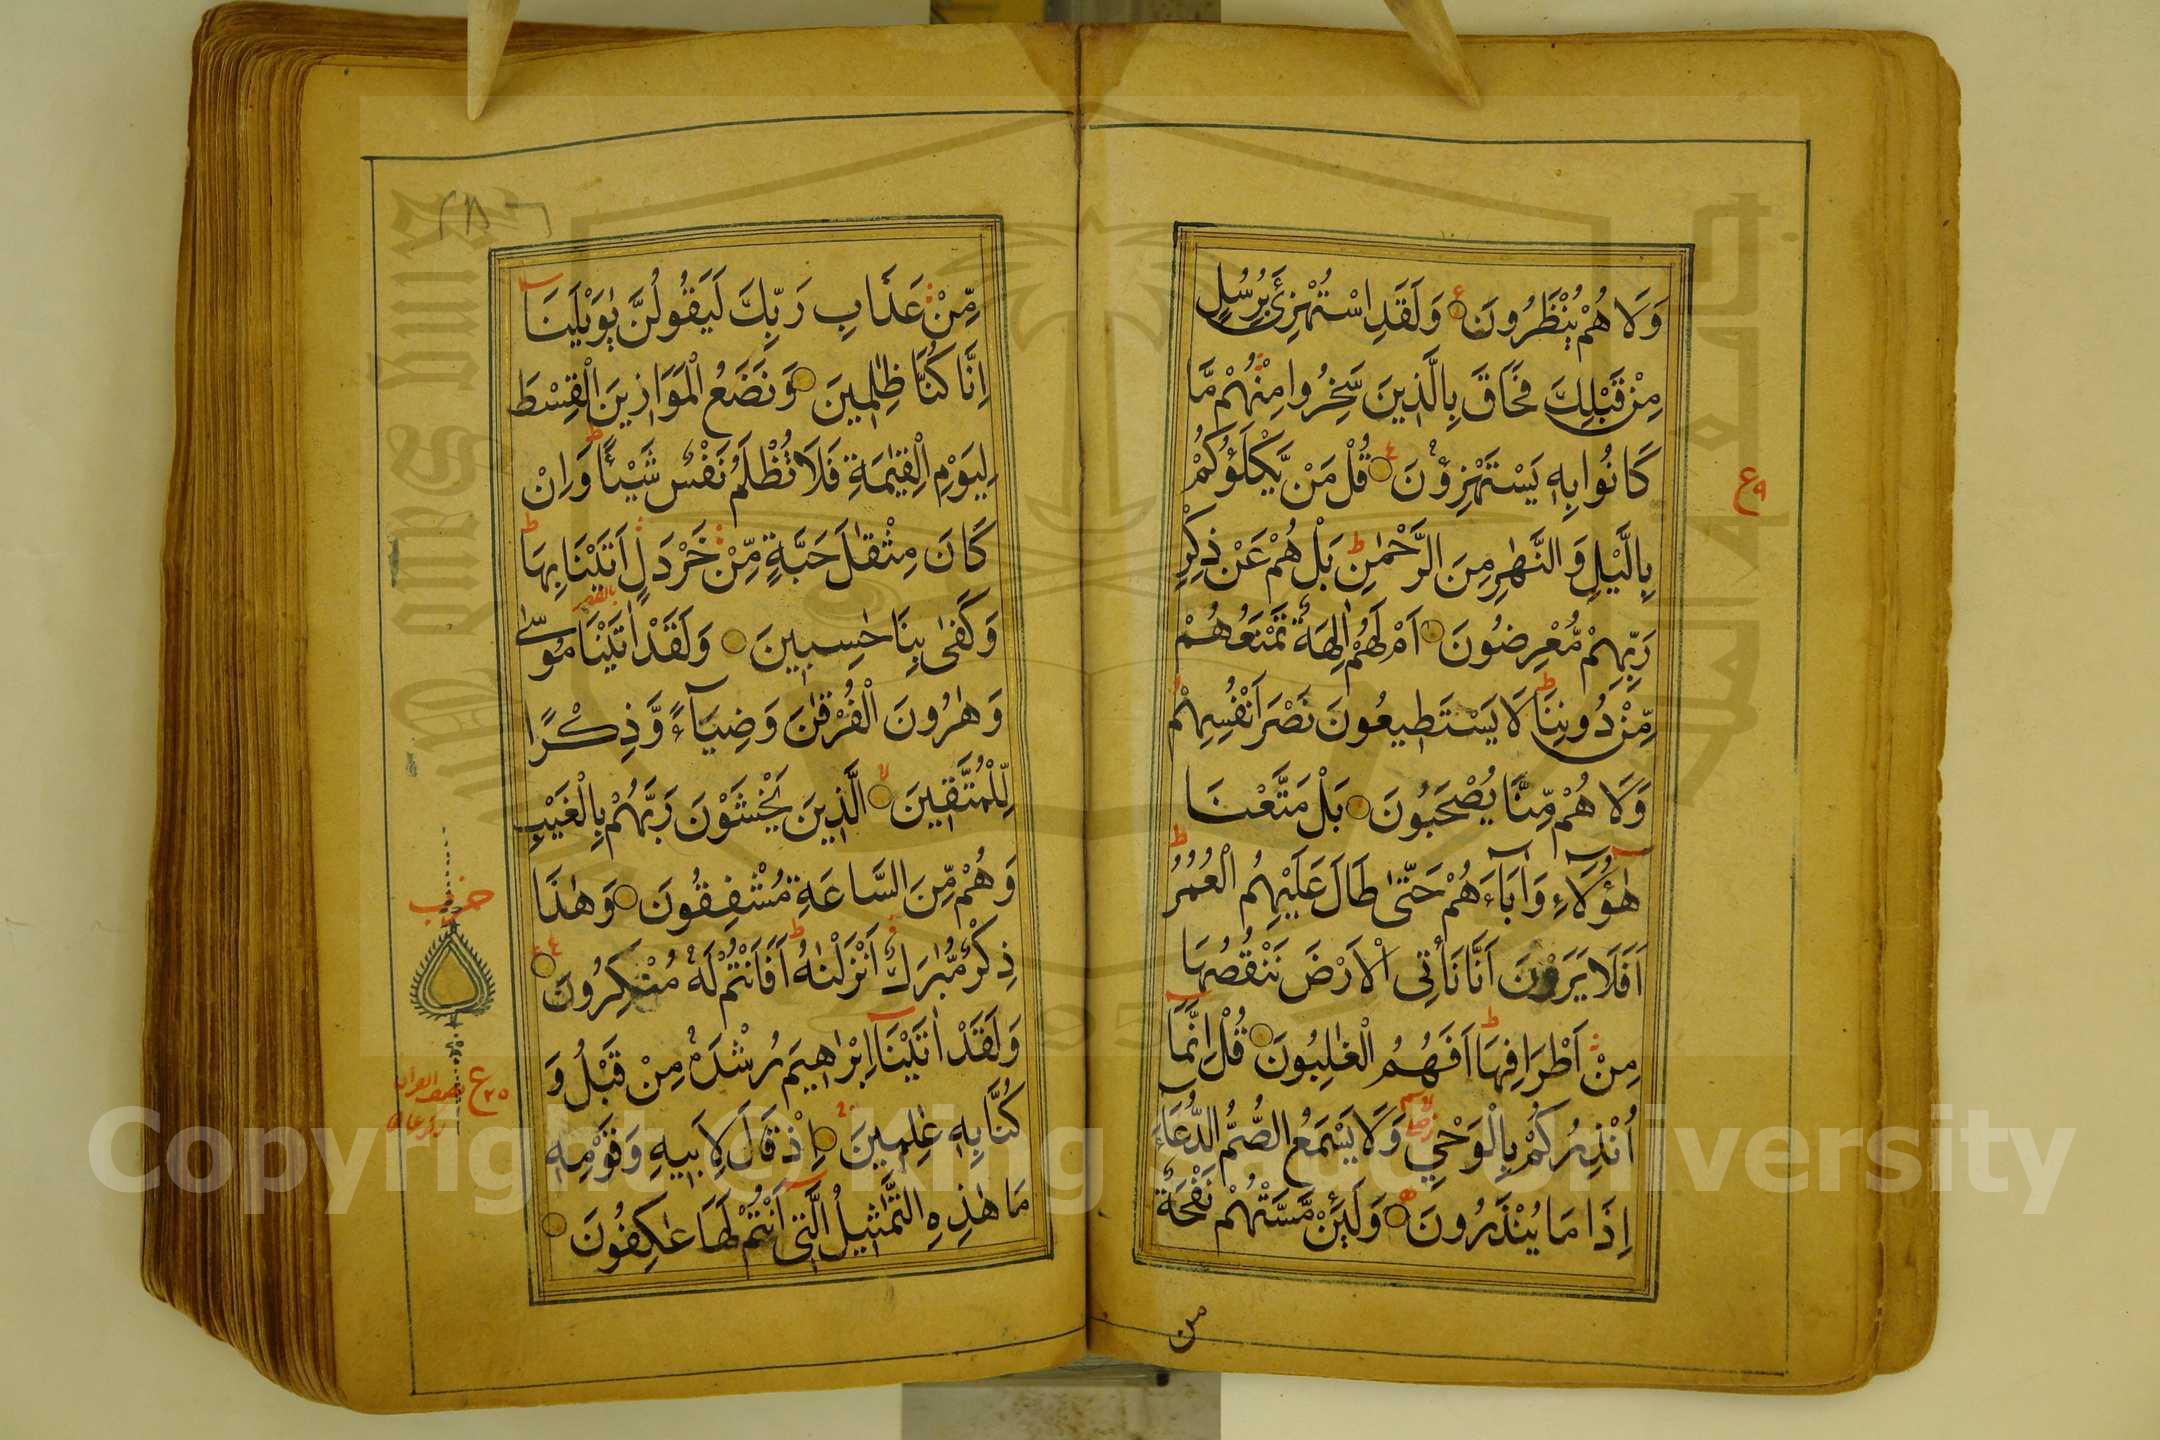 وَلَا هُمْ يُنْظَرُونَ وَلَقَدِ اسْتُهْزِئَ بِرُسُلٍ
مِنْ قَبْلِكَ فَحَاقَ بِالَّذِينَ سَخِرُوا مِنْهُمْ مَّا
كَانُوا بِهٖ يَسْتَهْزِؤُنَ قُلْ مَنْ يَّكْلَؤُكُمْ
بِالَّيْلِ وَالنَّهٰرِ مِنَ الرَّحْمٰنِ بَلْ هُمْ عَنْ ذِكْرِ
رَبِّهِمْ مُّعْرِضُونَ اَمْ لَهُمْ اٰلِهَةٌ تَمْنَعُهُمْ
مِّنْ دُونِنَا لَا يَسْتَطِيعُونَ نَصْرَ اَنْفُسِهِمْ
وَلَا هُمْ مِّنَّا يُصْحَبُونَ بَلْ مَتَّعْنَا
هٰؤُلَاءِ وَاٰبَاءَهُمْ حَتّٰى طَالَ عَلَيْهِمُ الْعُمُرُ
اَفَلَا يَرَوْنَ اَنَّا نَأْتِى الْاَرْضَ نَنْقُصُهَا
مِنْ اَطْرَافِهَا اَفَهُمُ الْغٰلِبُونَ قُلْ اِنَّمَا
اُنْذِرُكُمْ بِالْوَحْيِ وَلَا يَسْمَعُ الصُّمُّ الدُّعَاءَ
اِذَا مَا يُنْذَرُونَ وَلَئِنْ مَّسَّتْهُمْ نَفْحَةٌ
من
ع ٩
مِّنْ عَذَابِ رَبِّكَ لَيَقُولُنَّ يٰوَيْلَنَا
اِنَّا كُنَّا ظٰلِمِينَ وَنَضَعُ الْمَوَازِينَ الْقِسْطَ
لِيَوْمِ الْقِيٰمَةِ فَلَا تُظْلَمُ نَفْسٌ شَيْئًا وَاِنْ
كَانَ مِثْقَالَ حَبَّةٍ مِّنْ خَرْدَلٍ اَتَيْنَا بِهَا
وَكَفٰى بِنَا حٰسِبِينَ وَلَقَدْ اٰتَيْنَا مُوسٰى
وَهٰرُونَ الْفُرْقٰنَ وَضِيَآءً وَّذِكْرًا
لِّلْمُتَّقِينَ الَّذِينَ يَخْشَوْنَ رَبَّهُمْ بِالْغَيْبِ
وَهُمْ مِّنَ السَّاعَةِ مُشْفِقُونَ وَهٰذَا
ذِكْرٌ مُّبٰرَكٌ اَنْزَلْنٰهُ اَفَاَنْتُمْ لَهٗ مُنْكِرُونَ
وَلَقَدْ اٰتَيْنَا اِبْرٰهِيمَ رُشْدَهٗ مِنْ قَبْلُ وَ
كُنَّا بِهٖ عٰلِمِينَ اِذْ قَالَ لِاَبِيهِ وَقَوْمِهٖ
مَا هٰذِهِ التَّمٰثِيلُ الَّتِى اَنْتُمْ لَهَا عٰكِفُونَ
حزب
Copyright © King Saud University